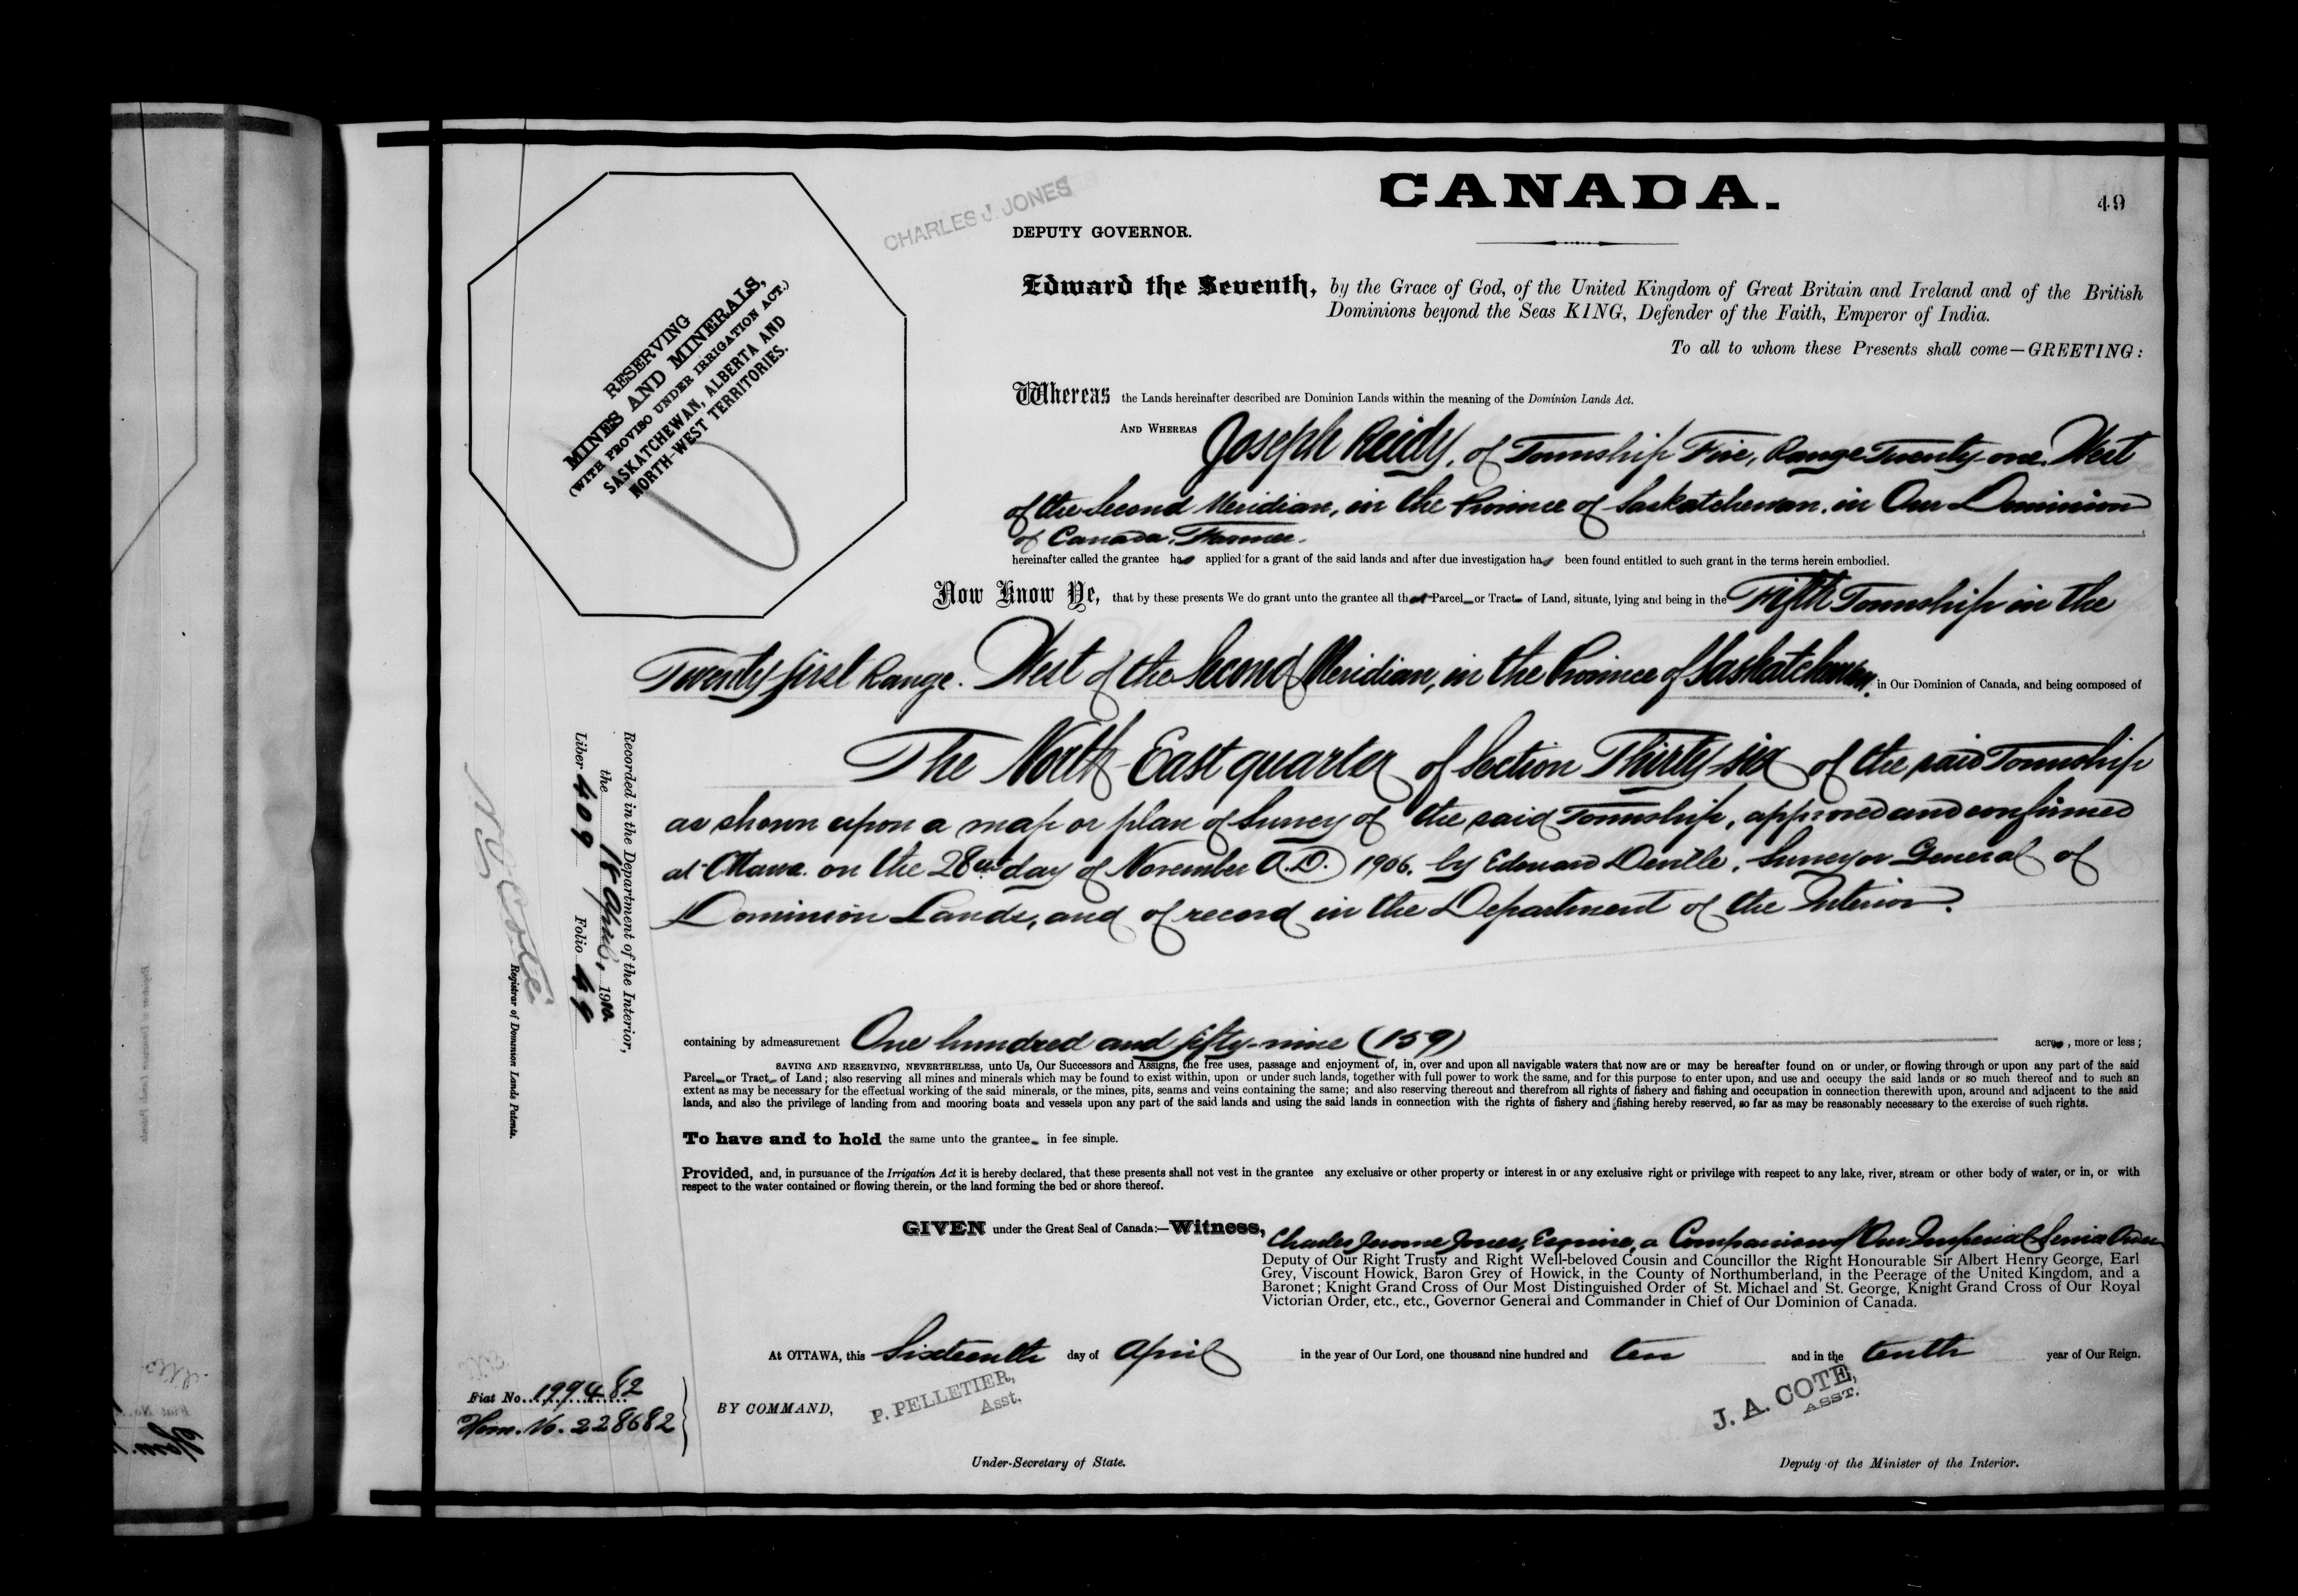 CANADA.
49
CHARLES J. JONES
DEPUTY GOVERNOR.
Edward the Seventh, by the Grace of God, of the United Kingdom of Great Britain and Ireland and of the British
Dominions beyond the Seas KING, Defender of the Faith, Emperor of India.
To all to whom these Presents shall come—GREETING:
RESERVING
MINES AND MINERALS,
(WITH PROVISO UNDER IRRIGATION ACT.)
SASKATCHEWAN, ALBERTA AND
NORTH-WEST TERRITORIES.
Whereas the Lands hereinafter described are Dominion Lands within the meaning of the Dominion Lands Act.
AND WHEREAS Joseph Reidy, of Township Five, Range Twenty-one, West
of the Second Meridian, in the Province of Saskatchewan, in Our Dominion
of Canada, Farmer.
hereinafter called the grantee has applied for a grant of the said lands and after due investigation has been found entitled to such grant in the terms herein embodied.
Now Know Ye, that by these presents We do grant unto the grantee all that Parcel or Tract of Land, situate, lying and being in the Fifth Township in the
Twenty first Range, West of the Second Meridian, in the Province of Saskatchewan, in Our Dominion of Canada, and being composed of
The North East quarter of Section Thirty-six of the said Township
as shown upon a map or plan of Survey of the said Township, approved and confirmed
at Ottawa on the 28th day of November A.D. 1906, by Edouard Deville, Surveyor General of
Dominion Lands, and of record in the Department of the Interior.
containing by admeasurement One hundred and fifty-nine (159) acres, more or less;
SAVING AND RESERVING, NEVERTHELESS, unto Us, Our Successors and Assigns, the free uses, passage and enjoyment of, in, over and upon all navigable waters that now are or may be hereafter found on or under, or flowing through or upon any part of the said
Parcel or Tract of Land; also reserving all mines and minerals which may be found to exist within, upon or under such lands, together with full power to work the same, and for this purpose to enter upon, and use and occupy the said lands or so much thereof and to such an
extent as may be necessary for the effectual working of the said minerals, or the mines, pits, seams and veins containing the same; and also reserving thereout and therefrom all rights of fishery and fishing and occupation in connection therewith upon, around and adjacent to the said
lands, and also the privilege of landing from and mooring boats and vessels upon any part of the said lands and using the said lands in connection with the rights of fishery and fishing hereby reserved, so far as may be reasonably necessary to the exercise of such rights.
To have and to hold the same unto the grantee in fee simple.
Provided, and, in pursuance of the Irrigation Act it is hereby declared, that these presents shall not vest in the grantee any exclusive or other property or interest in or any exclusive right or privilege with respect to any lake, river, stream or other body of water, or in, or with
respect to the water contained or flowing therein, or the land forming the bed or shore thereof.
GIVEN under the Great Seal of Canada:—Witness, Charles Jerome Jones, Esquire, a Companion of Our Imperial Service Order
Deputy of Our Right Trusty and Right Well-beloved Cousin and Councillor the Right Honourable Sir Albert Henry George, Earl
Grey, Viscount Howick, Baron Grey of Howick, in the County of Northumberland, in the Peerage of the United Kingdom, and a
Baronet; Knight Grand Cross of Our Most Distinguished Order of St. Michael and St. George, Knight Grand Cross of Our Royal
Victorian Order, etc., etc., Governor General and Commander in Chief of Our Dominion of Canada.
At OTTAWA, this Sixteenth day of April in the year of Our Lord, one thousand nine hundred and ten and in the tenth year of Our Reign.
BY COMMAND,
P. PELLETIER,
Asst.
J. A. COTE,
ASST.
Under-Secretary of State.
Deputy of the Minister of the Interior.
Fiat No. 199482
Hom. No. 228682
Recorded in the Department of the Interior,
the 18 April, 1910.
Liber 409 Folio 49
N. O. Coté
Registrar of Dominion Lands Patents.